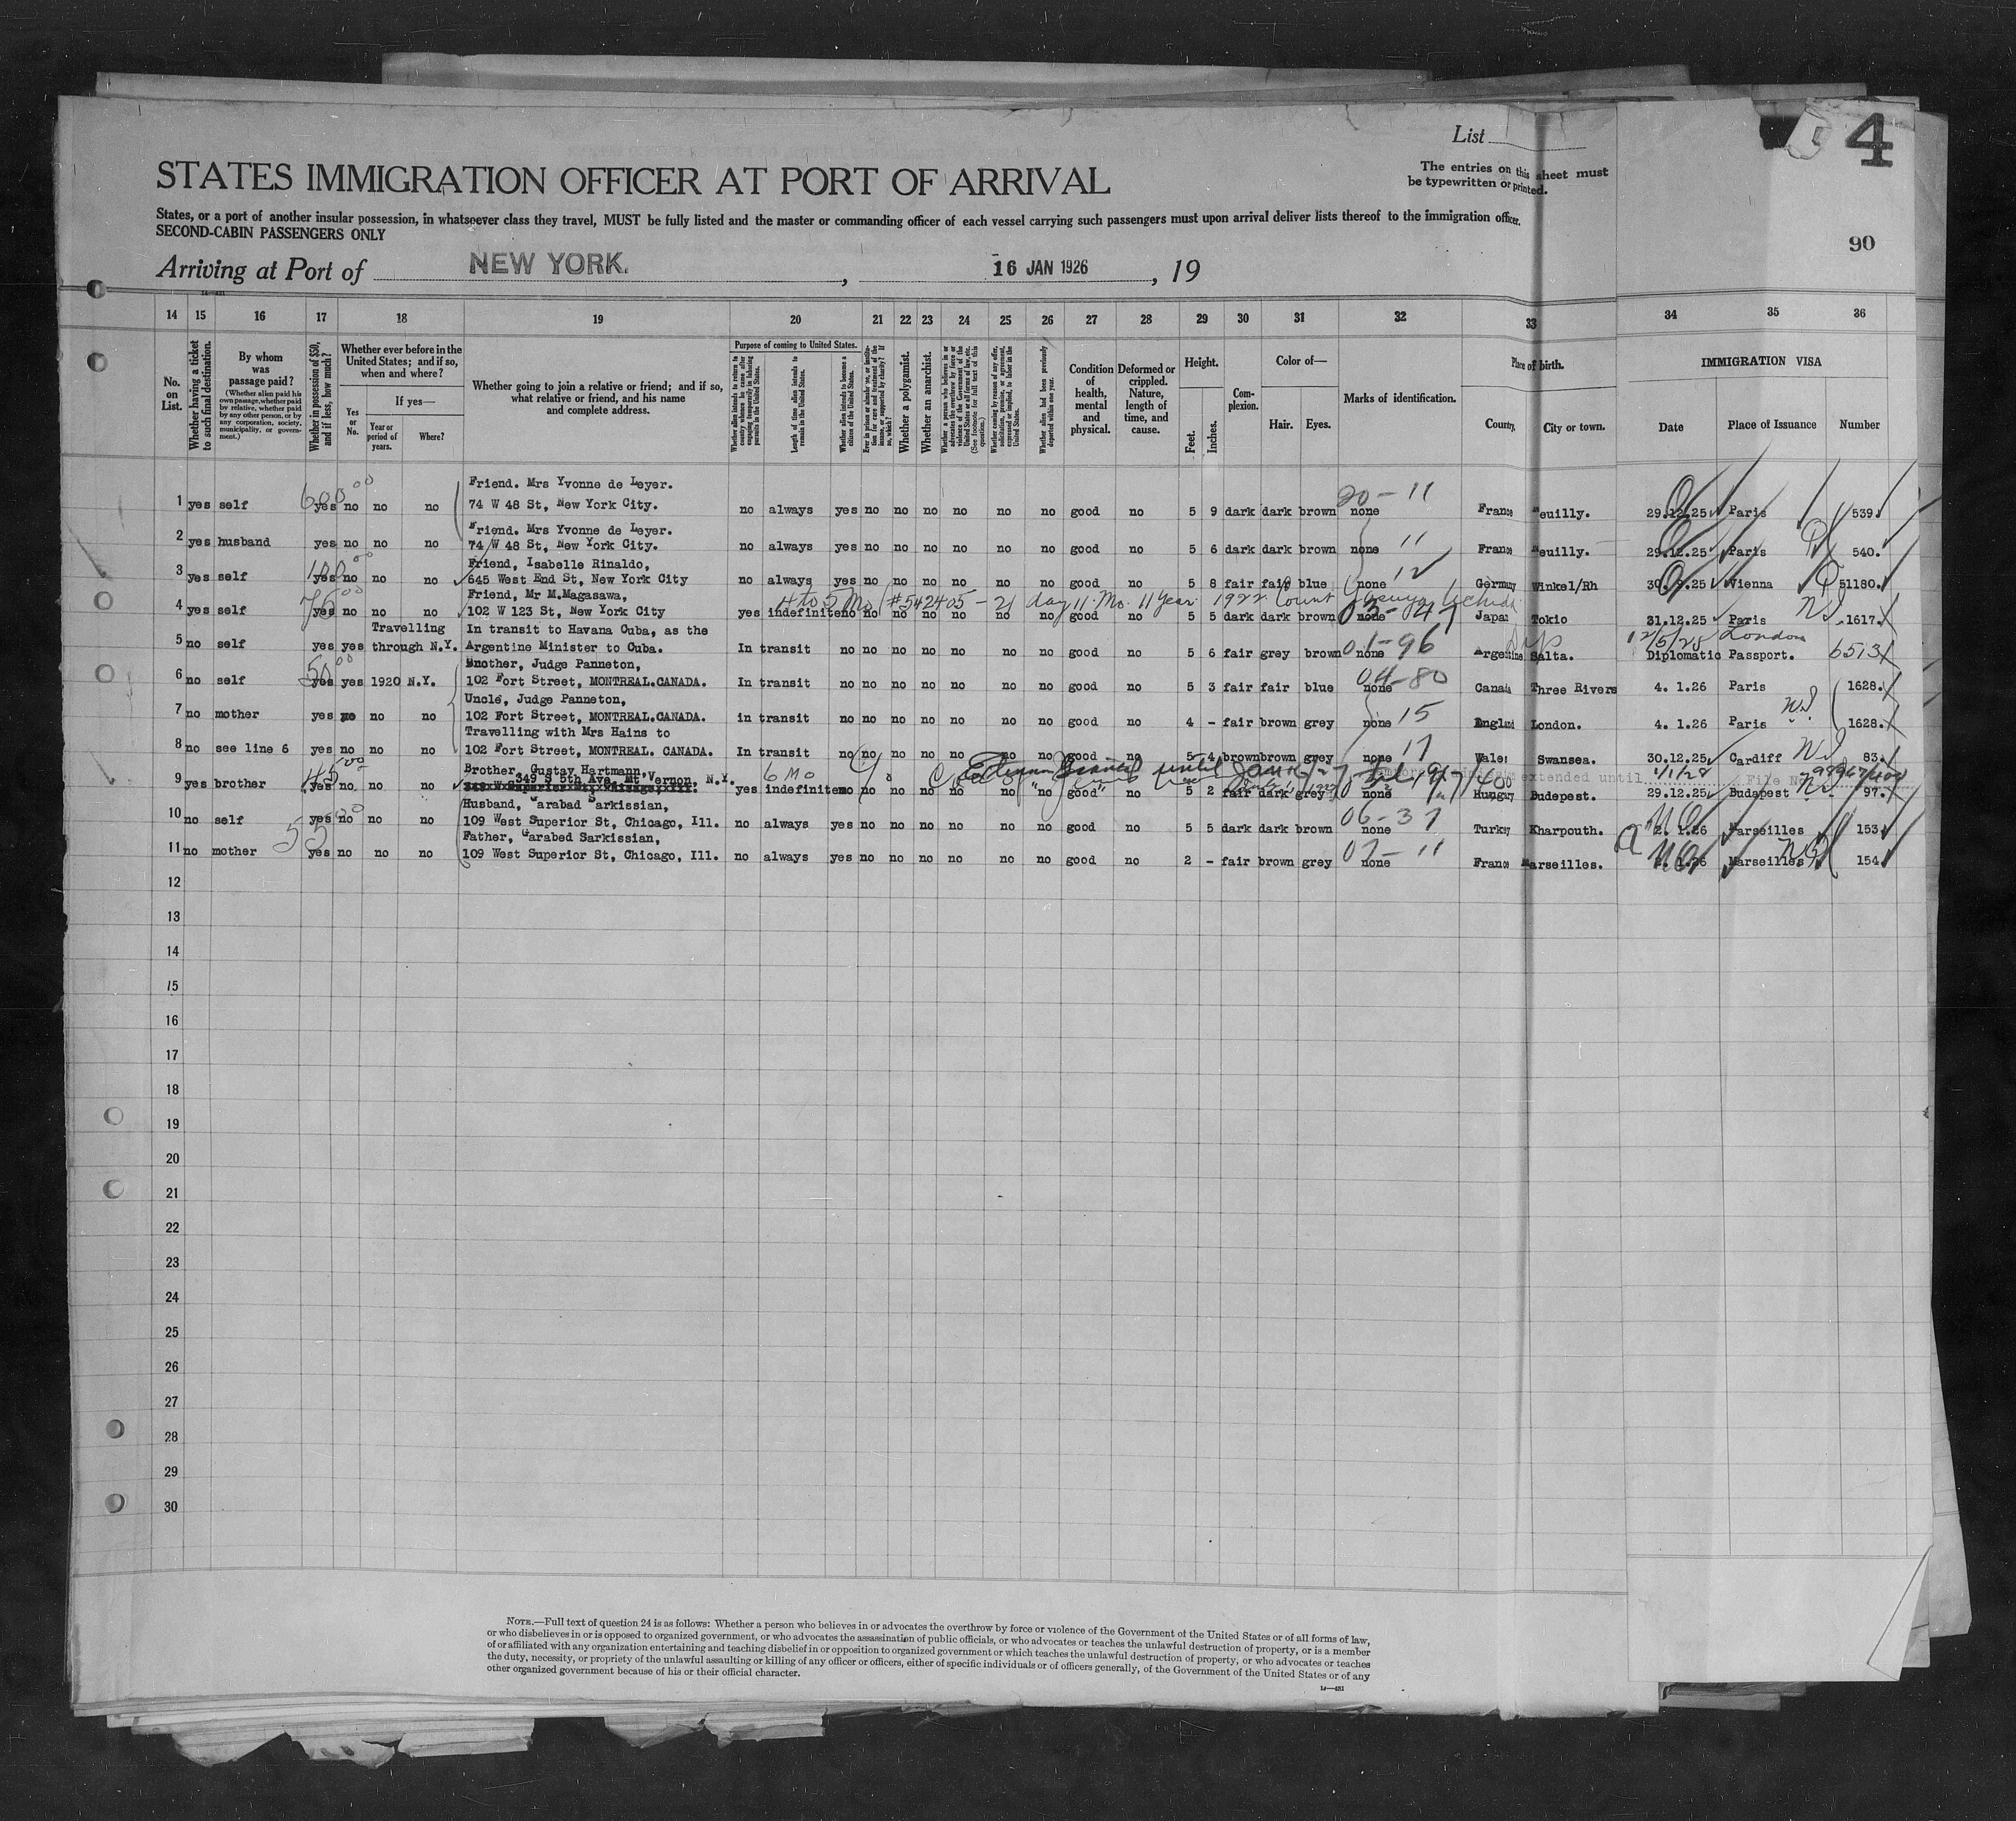 List
4
The entries on this sheet must
be typewritten or printed.
STATES IMMIGRATION OFFICER AT PORT OF ARRIVAL
States, or a port of another insular possession, in whatsoever class they travel, MUST be fully listed and the master or commanding officer of each vessel carrying such passengers must upon arrival deliver lists thereof to the immigration officer.
SECOND-CABIN PASSENGERS ONLY
90
Arriving at Port of NEW YORK. , 16 JAN 1926 , 19
14 15 16 17 18 19 20 21 22 23 24 25 26 27 28 29 30 31 32 33 34 35 36
No. on List.
Whether having a ticket to such final destination.
By whom was passage paid?
(Whether alien paid his own passage, whether paid by relative, whether paid by any other person, or by any corporation, society, municipality, or government.)
Whether in possession of $50, and if less, how much?
Whether ever before in the United States; and if so, when and where?
Yes or No.
If yes—
Year or period of years.
Where?
Whether going to join a relative or friend; and if so, what relative or friend, and his name and complete address.
Purpose of coming to United States.
Length of time alien intends to remain in the United States.
Whether alien intends to become a citizen of the United States.
Whether a polygamist.
Whether an anarchist.
Condition of health, mental and physical.
Deformed or crippled. Nature, length of time, and cause.
Height.
Feet.
Inches.
Complexion.
Color of—
Hair.
Eyes.
Marks of identification.
Place of birth.
Country.
City or town.
IMMIGRATION VISA
Date
Place of Issuance
Number
Friend. Mrs Yvonne de Leyer.
1 yes self 600 00 yes no no no 74 W 48 St, New York City. no always yes no no no no no no good no 5 9 dark dark brown none 20-11 France Neuilly. 29.12.25 Paris 539.
Friend. Mrs Yvonne de Leyer.
2 yes husband yes no no no 74 W 48 St, New York City. no always yes no no no no no no good no 5 6 dark dark brown none 11 France Neuilly. 29.12.25 Paris 540.
Friend, Isabelle Rinaldo,
3 yes self 100 00 yes no no no 645 West End St, New York City no always yes no no no no no no good no 5 8 fair fair blue none 12 Germany Winkel/Rh 30.9.25 Vienna 51180.
Friend, Mr M.Magasawa,
4 to 5 Mo #542405 - 21 day 11 Mo. 11 Year 1922
4 yes self 75 00 yes no no no 102 W 123 St, New York City yes indefinite no no no no no no no good no 5 5 dark dark brown none 03-47 Japan Tokio 31.12.25 Paris 1617.
Travelling In transit to Havana Cuba, as the
12/5/25 London 6513
5 no self yes yes through N.Y. Argentine Minister to Cuba. In transit no no no no no no no good no 5 6 fair grey brown none 01-96 Argentine Salta. Diplomatic Passport.
Brother, Judge Panneton,
6 no self 50 00 yes yes 1920 N.Y. 102 Fort Street, MONTREAL.CANADA. In transit no no no no no no no good no 5 3 fair fair blue none 04-80 Canada Three Rivers 4. 1.26 Paris 1628.
Uncle, Judge Panneton,
7 no mother yes no no no 102 Fort Street, MONTREAL.CANADA. in transit no no no no no no no good no 4 - fair brown grey none 15 England London. 4. 1.26 Paris 1628.
Travelling with Mrs Hains to
8 no see line 6 yes no no no 102 Fort Street, MONTREAL. CANADA. In transit no no no no no no no good no 5 4 brown brown grey none 17 Wales Swansea. 30.12.25 Cardiff 83.
Brother, Gustav Hartmann,
349 S 5th Ave, Mt Vernon, N.Y.
6 mo
extended until 1/1/28 File No.
9 yes brother yes no no no yes indefinite no no no no no no no good no 5 2 fair dark grey none Hungary Budapest. 29.12.25 Budapest 97.
Husband, Garabad Sarkissian,
10 no self yes no no no 109 West Superior St, Chicago, Ill. no always yes no no no no no no good no 5 5 dark dark brown none 06-37 Turkey Kharpouth. 2. 1.26 Marseilles 153.
Father, Garabed Sarkissian,
11 no mother 55 00 yes no no no 109 West Superior St, Chicago, Ill. no always yes no no no no no no good no 2 - fair brown grey none 07-11 France Marseilles. 2. 1.26 Marseilles 154.
12
13
14
15
16
17
18
19
20
21
22
23
24
25
26
27
28
29
30
NOTE.—Full text of question 24 is as follows: Whether a person who believes in or advocates the overthrow by force or violence of the Government of the United States or of all forms of law,
or who disbelieves in or is opposed to organized government, or who advocates the assassination of public officials, or who advocates or teaches the unlawful destruction of property, or is a member
of or affiliated with any organization entertaining and teaching disbelief in or opposition to organized government or which teaches the unlawful destruction of property, or who advocates or teaches
the duty, necessity, or propriety of the unlawful assaulting or killing of any officer or officers, either of specific individuals or of officers generally, of the Government of the United States or of any
other organized government because of his or their official character.